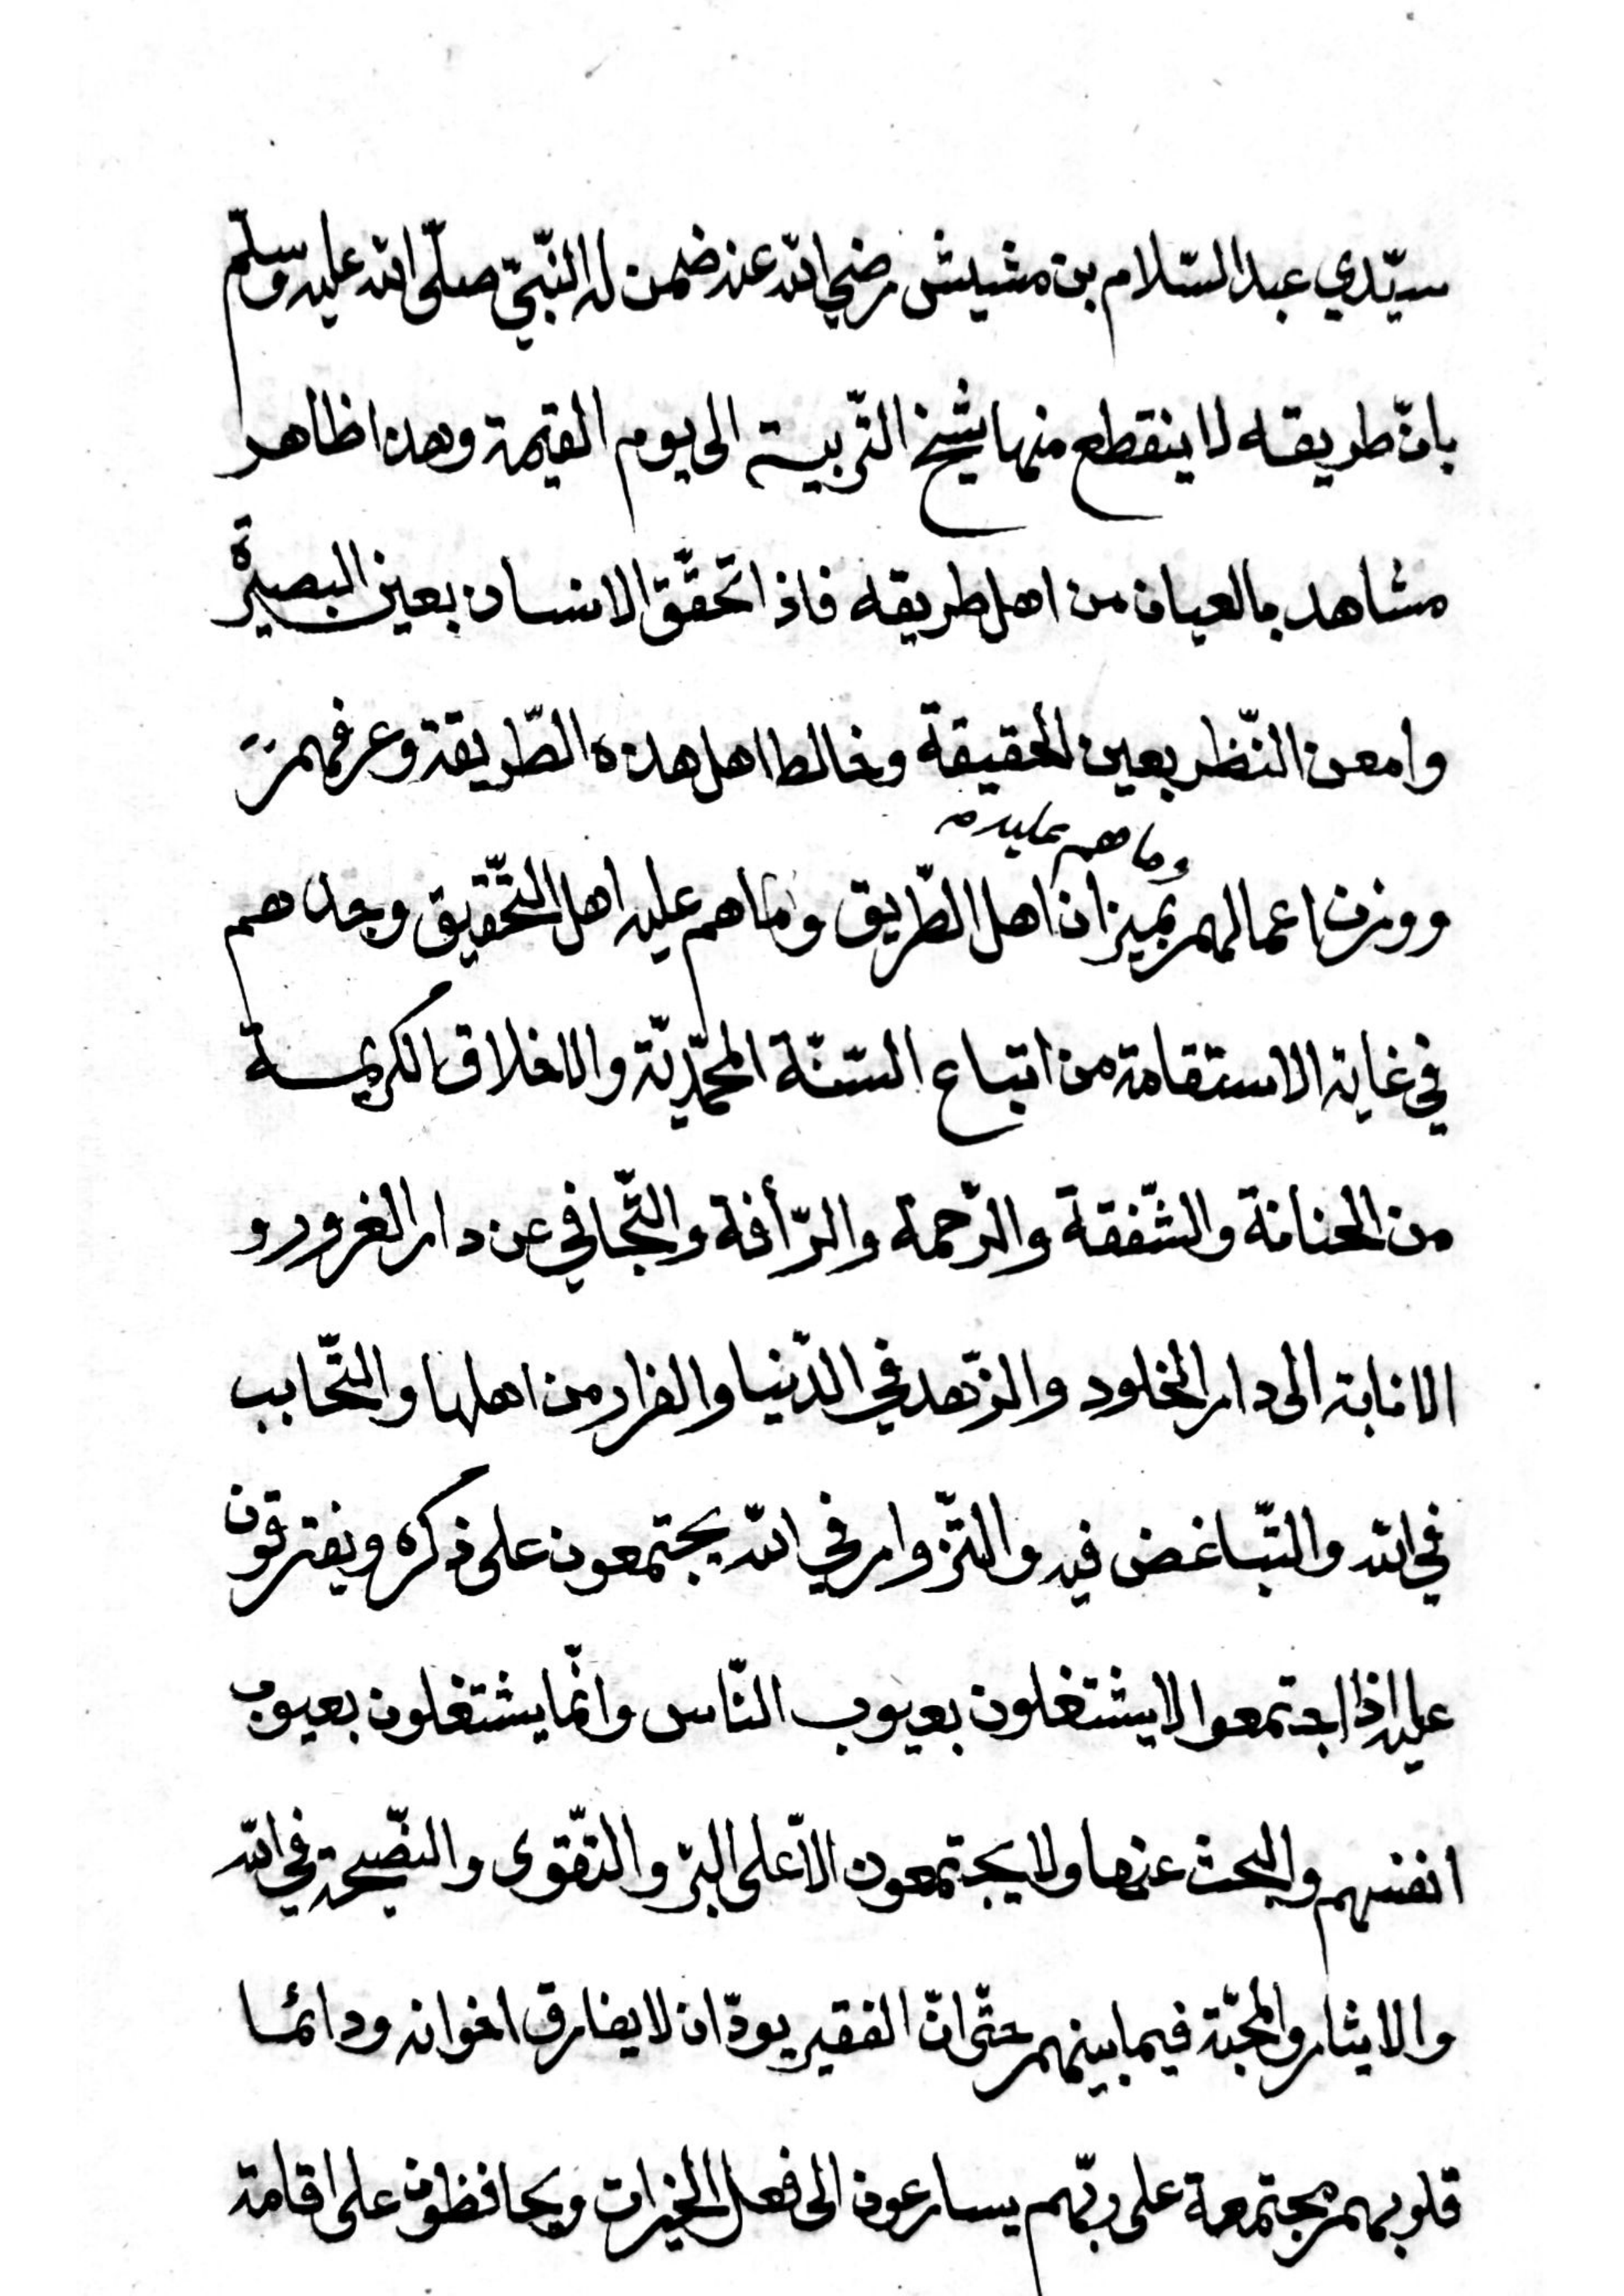 سيّدي عبد السّلام بن مشيش رضي الله عنه ضمن له النّبيّ صلّى الله عليه وسلّم
بانّ طريقه لا ينقطع منها شيخ التّربية الى يوم القيمة وهذا ظاهر
مشاهد بالعيان من اهل طريقه فاذا تحقّق الانسان بعين البصيرة
وامعن النّظر بعين الحقيقة وخالط اهل هذه الطّريقة وعرفهم
وما هم عليه
ووزن اعمالهم بميزان اهل الطّريق وما هم عليه اهل التّحقيق وجدهم
في غاية الاستقامة من اتباع السّنّة المحمّديّة والاخلاق الكريمة
من الحنانة والشّفقة والرّحمة والرّأفة والتّجافي عن دار الغرور و
الانابة الى دار الخلود والزّهد في الدّنيا والفرار من اهلها والتّحابب
في الله والتّباغض فيه والتّزوار في الله يجتمعون على ذكره ويفترقون
عليه اذا اجتمعوا لا يشتغلون بعيوب النّاس وانّما يشتغلون بعيوب
انفسهم والبحث عنها ولا يجتمعون الاّ على البرّ والتّقوى والنّصيحة في الله
والايثار والمحبّة فيما بينهم حتّى انّ الفقير يودّ ان لا يفارق اخوانه ودائما
قلوبهم مجتمعة على ربّهم يسارعون الى فعل الخيرات ويحافظون على اقامة